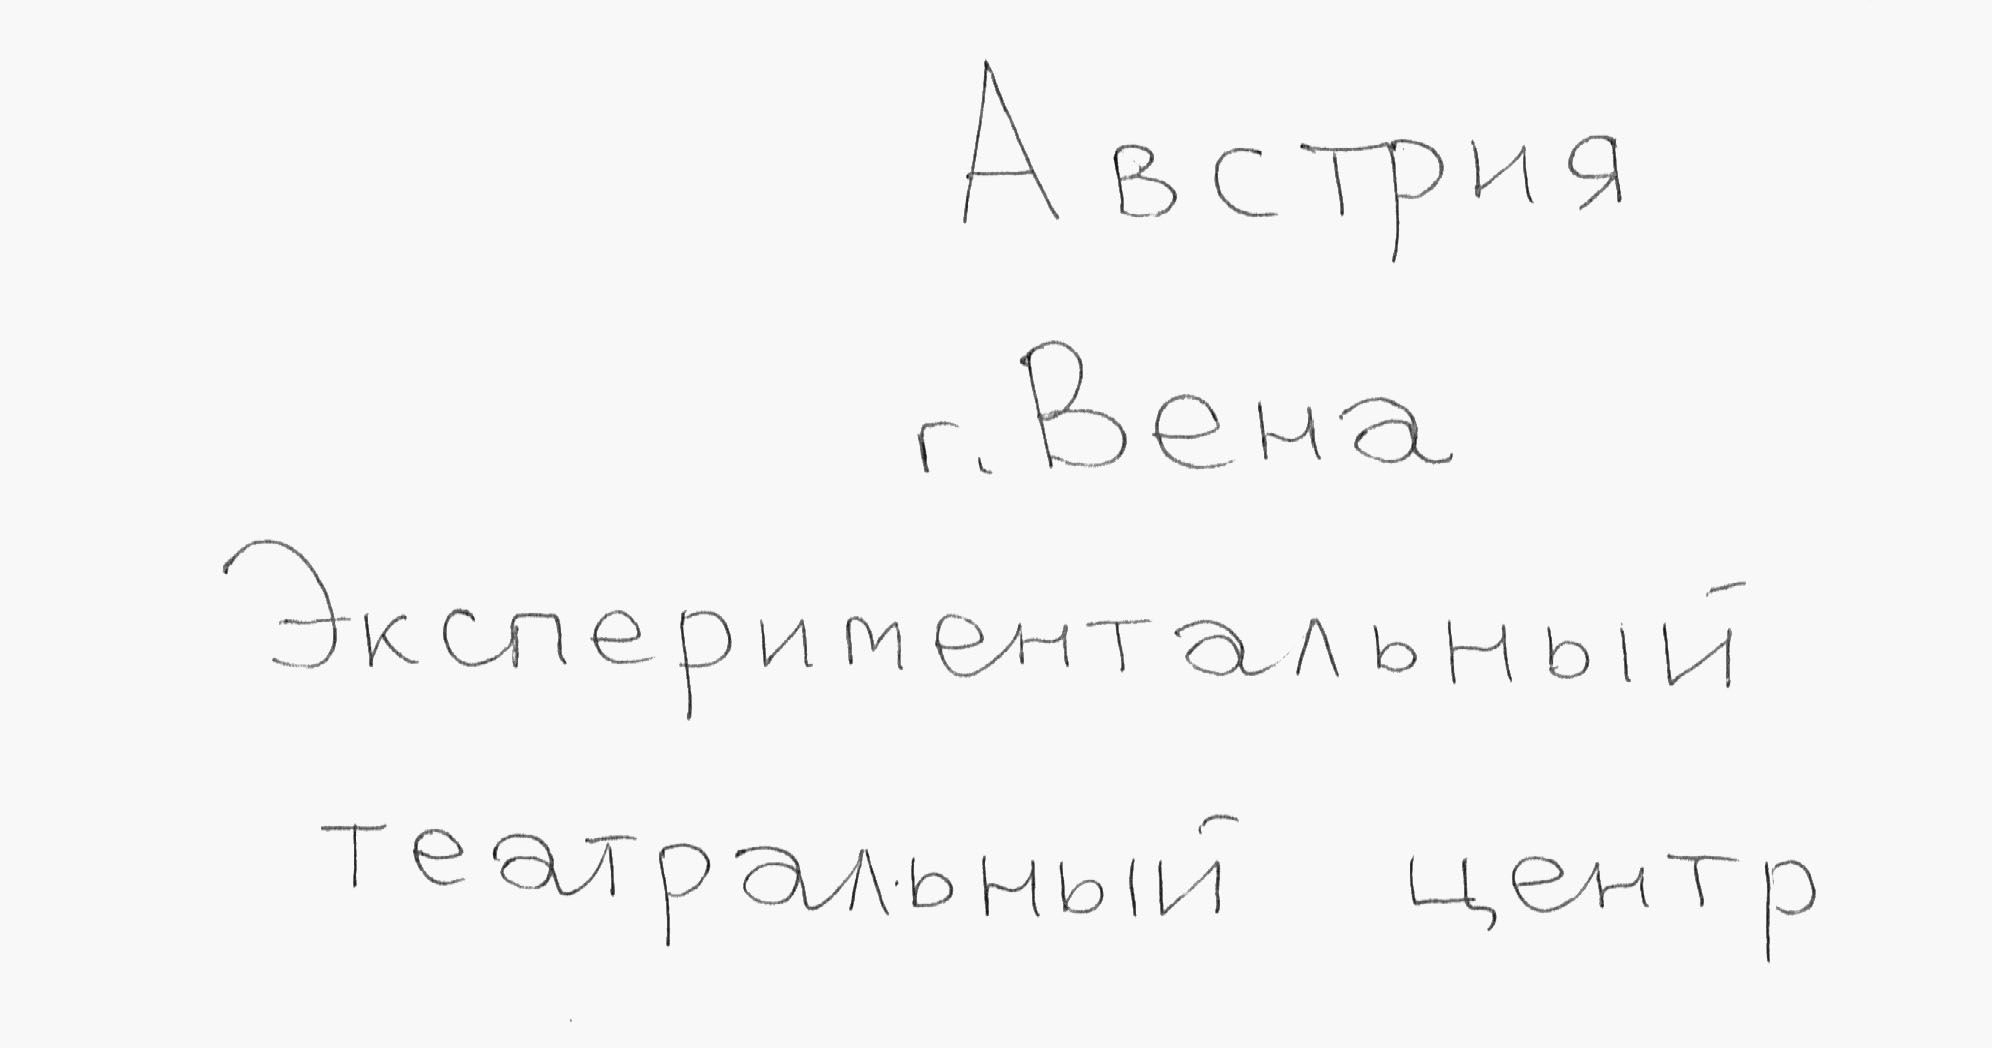 Австрия
г. Вена
Экспериментальный
театральный центр